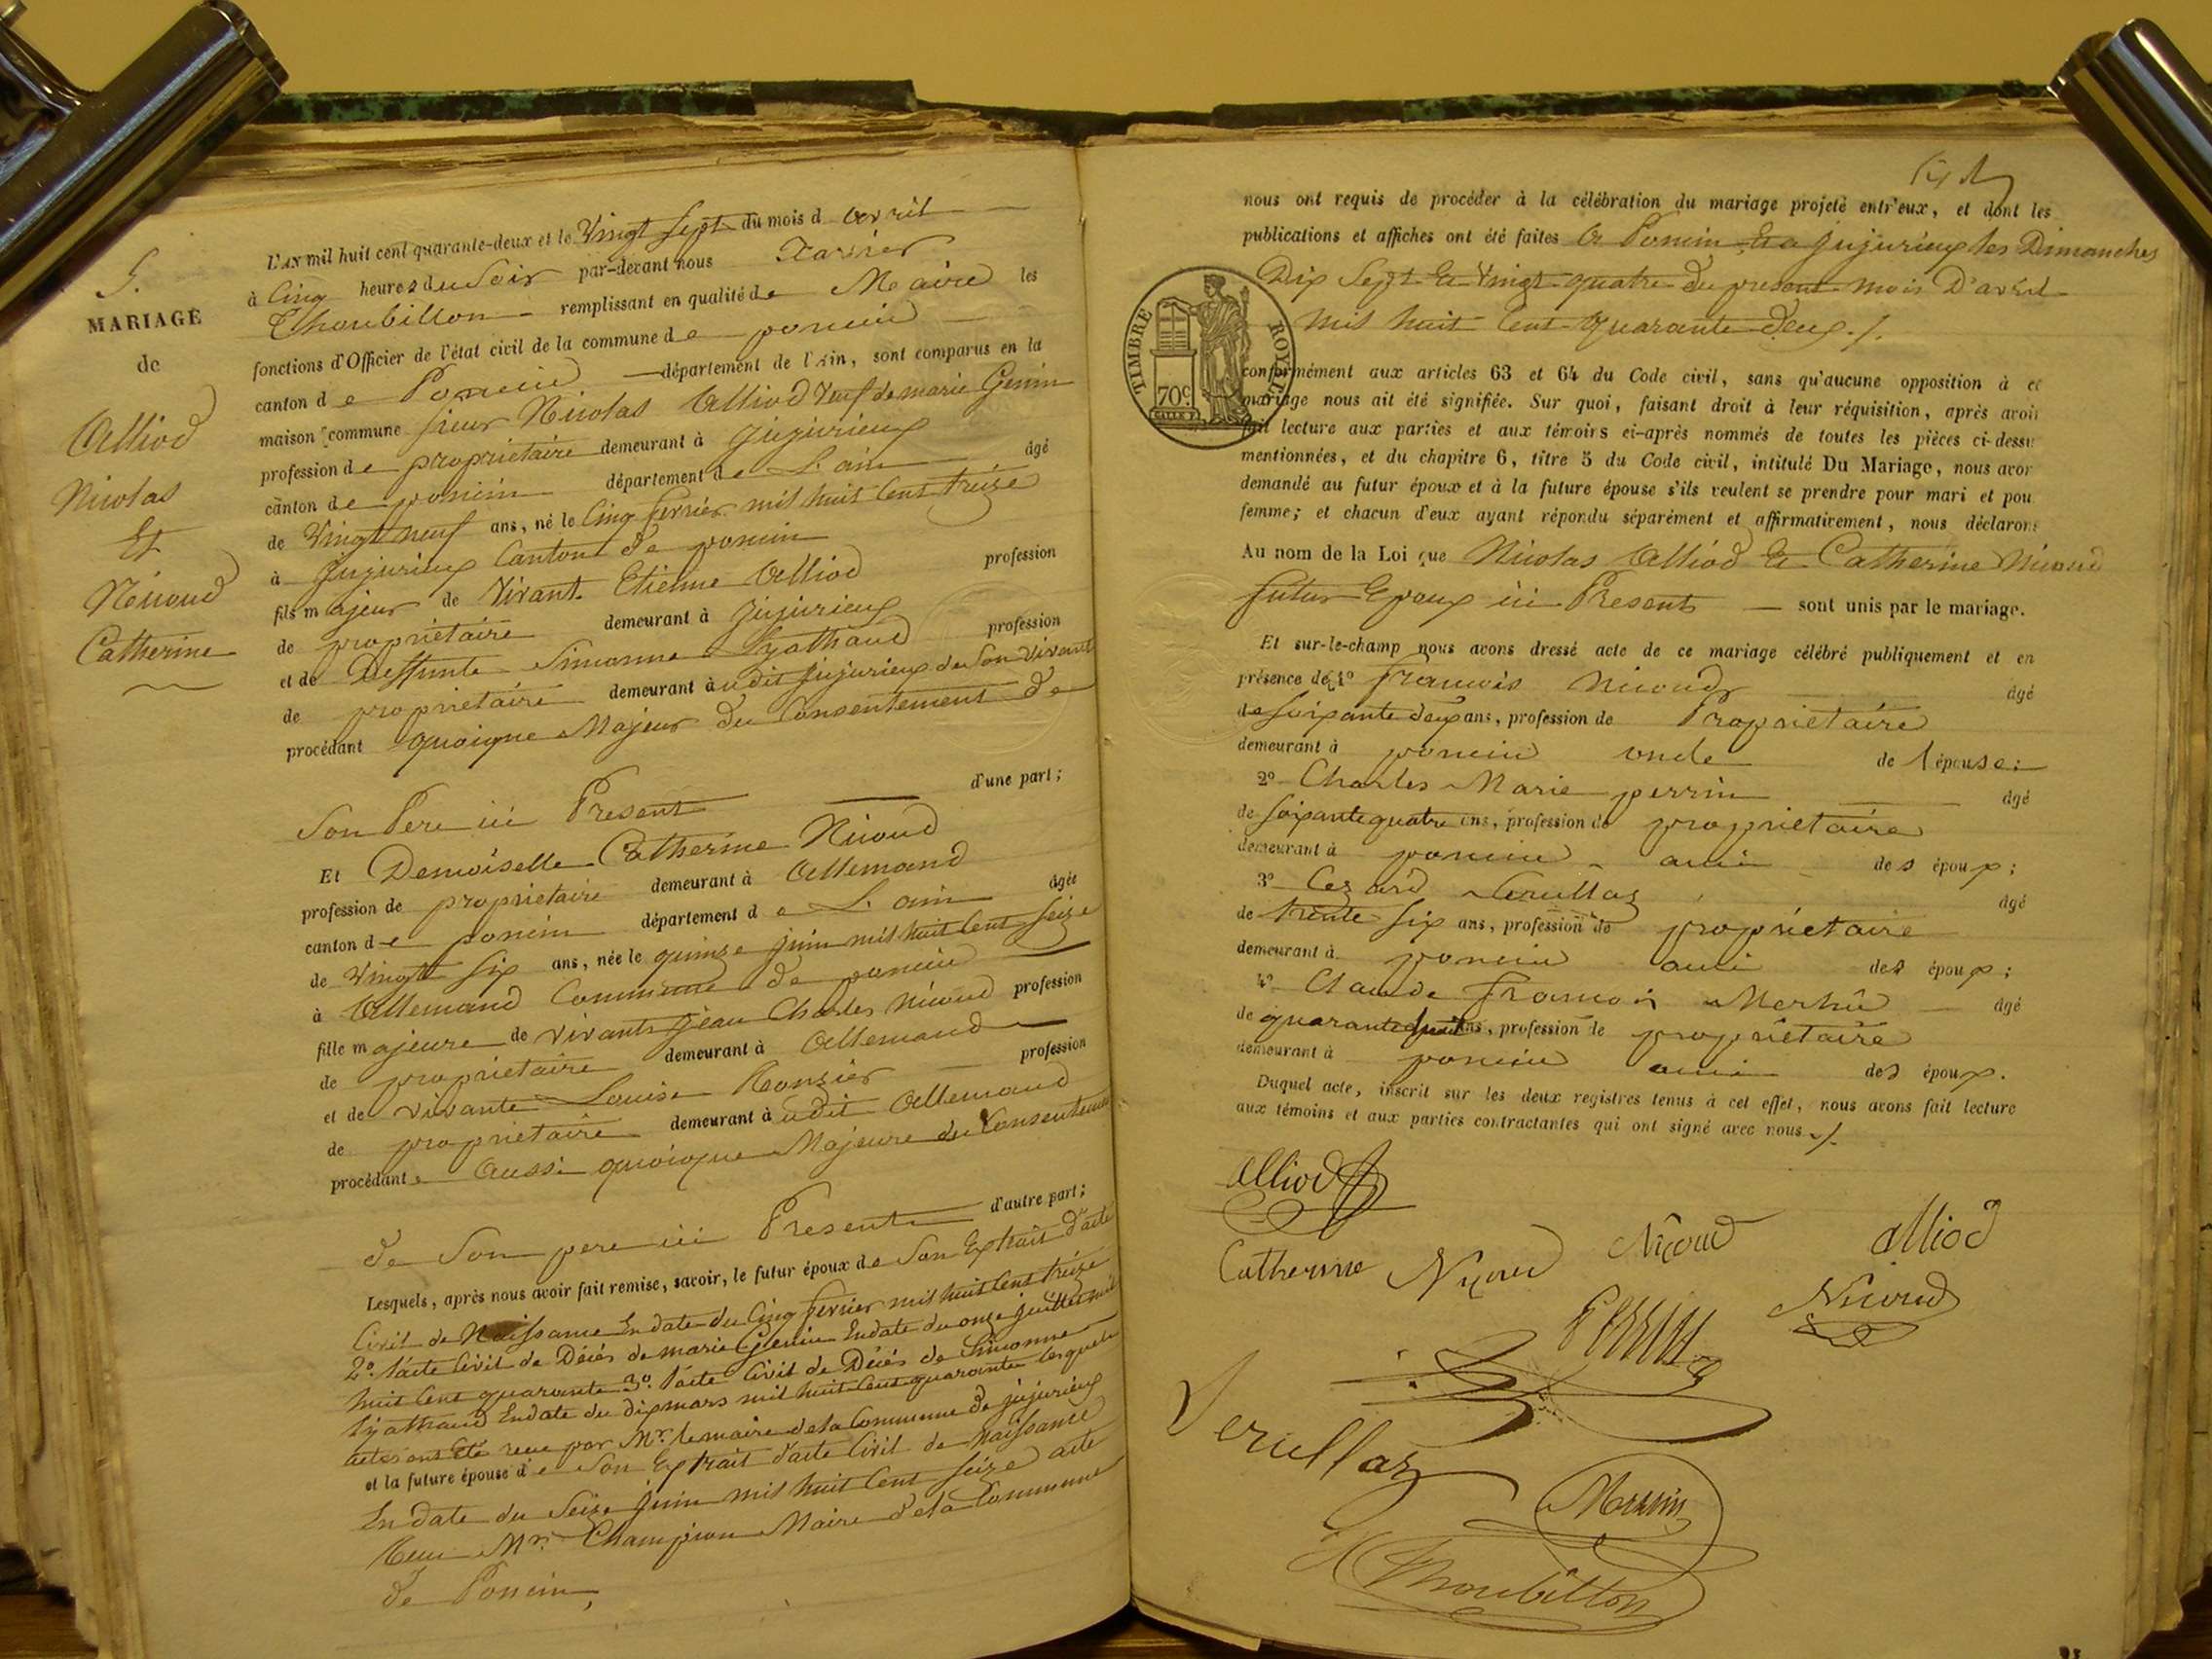 5.
MARIAGE
de
Alliod
Nicolas
Et
Nicoud
Catherine
L'AN mil huit cent quarante-deux et le Vingt Sept du mois d'avril
à Cinq heures du Soir par-devant nous Xavier
Thoubillon remplissant en qualité de Maire les
fonctions d'Officier de l'état civil de la commune de poncin
canton de Poncin département de l'Ain, sont comparus en la
maison commune sieur Nicolas Alliod Veuf de marie Genin
profession de propriétaire demeurant à jujurieux
canton de poncin département de L'ain âgé
de Vingt neuf ans, né le Cinq fevrier mil huit Cent treize
à Jujurieux Canton de poncin
fils majeur de Vivant Etienne Alliod profession
de propriétaire demeurant à jujurieux
et de Deffunte Simonne Lyathaud profession
de propriétaire demeurant audit jujurieux de Son vivant
procédant quoique Majeur du Consentement de
Son Pere ici Present d'une part;
Et Demoiselle Catherine Nicoud
profession de propriétaire demeurant à Allemand
canton de poncin département de L'ain âgée
de Vingt Six ans, née le quinze juin mil huit Cent Seize
à Allemand Commune de poncin
fille majeure de vivants jean Charles Nicoud profession
de propriétaire demeurant à Allemand
et de vivante Louise Ronzier profession
de propriétaire demeurant audit Allemand
procédante Aussi quoique Majeure du Consentement
de Son pere ici Present d'autre part;
Lesquels, après nous avoir fait remise, savoir, le futur époux de Son Extrait d'acte
Civil de Naissance En date du Cinq fevrier mil huit Cent treize
2º l'acte Civil de Décés de marie Genin Endate du onze juillet mil
huit Cent quarante 3º l'acte Civil de Décés de Simonne
Lyathaud Endate du dix mars mil huit Cent quarante lesquels
actes ont été recu par Mr. le maire de la Commune de jujurieux
et la future épouse de Son Extrait d'acte Civil de Naissance
En date du Seize juin mil huit Cent Seize acte
Recu Mr. Champion Maire de la Commune
de Poncin,
nous ont requis de procéder à la célébration du mariage projeté entr'eux, et dont les
publications et affiches ont été faites A Poncin Et a Jujurieux les Dimanches
Dix Sept Et Vingt quatre du present mois D'avril
mil huit Cent Quarante deux ./.
TIMBRE ROYAL
70c
conformément aux articles 63 et 64 du Code civil, sans qu'aucune opposition à ce
mariage nous ait été signifiée. Sur quoi, faisant droit à leur réquisition, après avoir
fait lecture aux parties et aux témoirs ci-après nommés de toutes les pièces ci-dessu
mentionnées, et du chapitre 6, titre 5 du Code civil, intitulé Du Mariage, nous avor
demandé au futur époux et à la future épouse s'ils veulent se prendre pour mari et pou
femme; et chacun d'eux ayant répondu séparément et affirmativement, nous déclarons
Au nom de la Loi que Nicolas Alliod Et Catherine Nicoud
futur Epoux ici Presents sont unis par le mariage.
Et sur-le-champ nous avons dressé acte de ce mariage célébré publiquement et en
présence de 1º francois Nicoud âgé
de soixante deux ans, profession de Propriétaire
demeurant à poncin oncle de l'épouse;
2º Charles Marie perrin âgé
de soixante quatre ans, profession de propriétaire
demeurant à poncin ami des époux;
3º Cezard Serullaz âgé
de trente six ans, profession de propriétaire
demeurant à poncin ami des époux;
4º Claude francois âgé
de quarante huit ans, profession de propriétaire
demeurant à poncin ami des époux.
Duquel acte, inscrit sur les deux registres tenus à cet effet, nous avons fait lecture
aux témoins et aux parties contractantes qui ont signé avec nous ./.
alliod
Catherine Nicoud Nicoud alliod
Perrin Nicoud
Serullaz
Thoubillon